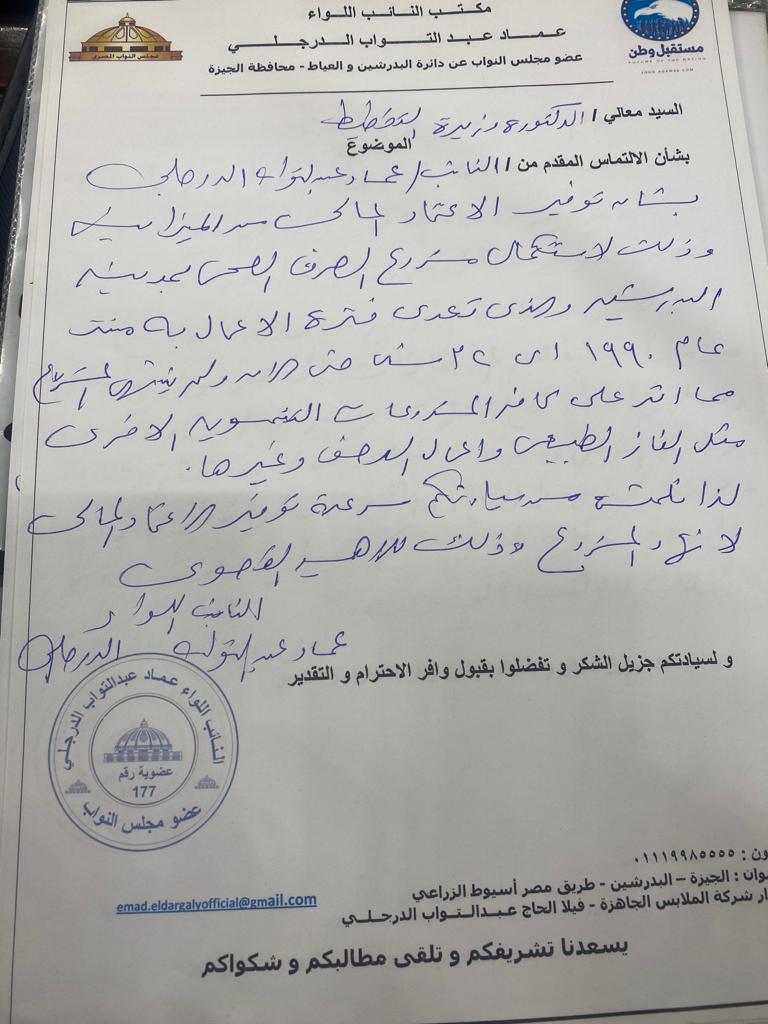 مكتب النائب اللواء
عماد عبد التواب الدرجلي
عضو مجلس النواب عن دائرة البدرشين و العياط - محافظة الجيزة
مجلس النواب المصري
مستقبل وطن
FUTURE OF THE NATION
السيد معالي / الدكتورة وزيرة التخطيط
الموضوع
بشأن الالتماس المقدم من / النائب / عماد عبدالتواب الدرجلى
بشان توفير الاعتماد المالى من الميزانية
وذلك لاستكمال مشروع الصرف الصحى بمدينة
البدرشين والذى تعدى فترة الاعمال به منذ
عام ١٩٩٠ اى ٣٢ سنة حتى الان ولم ينتهى المشروع
مما اثر على كافة المشروعات التنمويه الاخرى
مثل الغاز الطبيعى واعمال الرصف وغيرها.
لذا نلتمس من سيادتكم سرعة توفير الاعتماد المالى
لانهاء المشروع وذلك للاهمية القصوى
النائب اللواء
عماد عبدالتواب الدرجلى
و لسيادتكم جزيل الشكر و تفضلوا بقبول وافر الاحترام و التقدير
النائب اللواء عماد عبدالتواب الدرجلي
عضوية رقم
177
عضو مجلس النواب
ون : ٠١١١٩٩٨٥٥٥٥
وان : الجيزة – البدرشين - طريق مصر أسيوط الزراعي
ار شركة الملابس الجاهزة - فيلا الحاج عبدالتواب الدرجلي
emad.eldargalyofficial@gmail.com
يسعدنا تشريفكم و تلقى مطالبكم و شكواكم